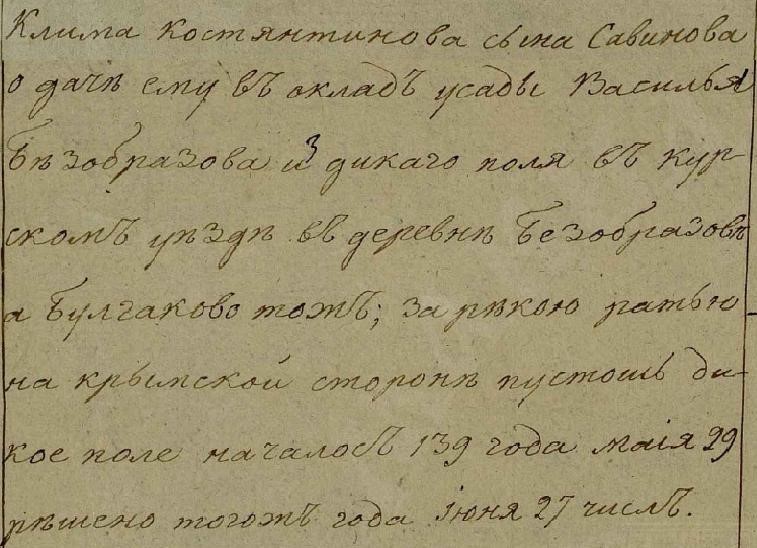 Клима Костянтинова сына Савинова
о дачѣ ему въ окладъ усады Василья
Бѣзобразова из дикаго поля въ Кур-
скомъ уѣздѣ въ деревнѣ Безобразовѣ
а Булгаково тожъ; за рѣкою ратью
на крымской сторонѣ пустошь ди-
кое поле началось 139 года маія 29
рѣшено тогожъ года Iюня 27 числъ.